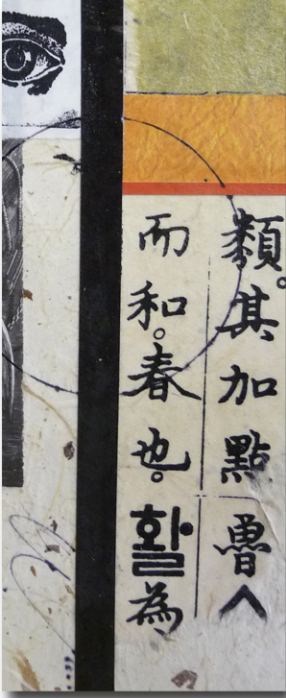 類。其加點魯
而和。春也。활為